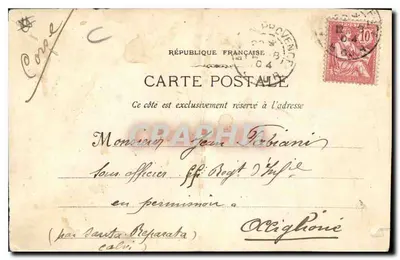 Corse
RÉPUBLIQUE FRANÇAISE
CARTE POSTALE
Ce côté est exclusivement réservé à l'adresse
Monsieur Jean Fabiani
Sous officier Regt d'Infie
en permission
(par Santa Reparata
CARTORUM
10
04